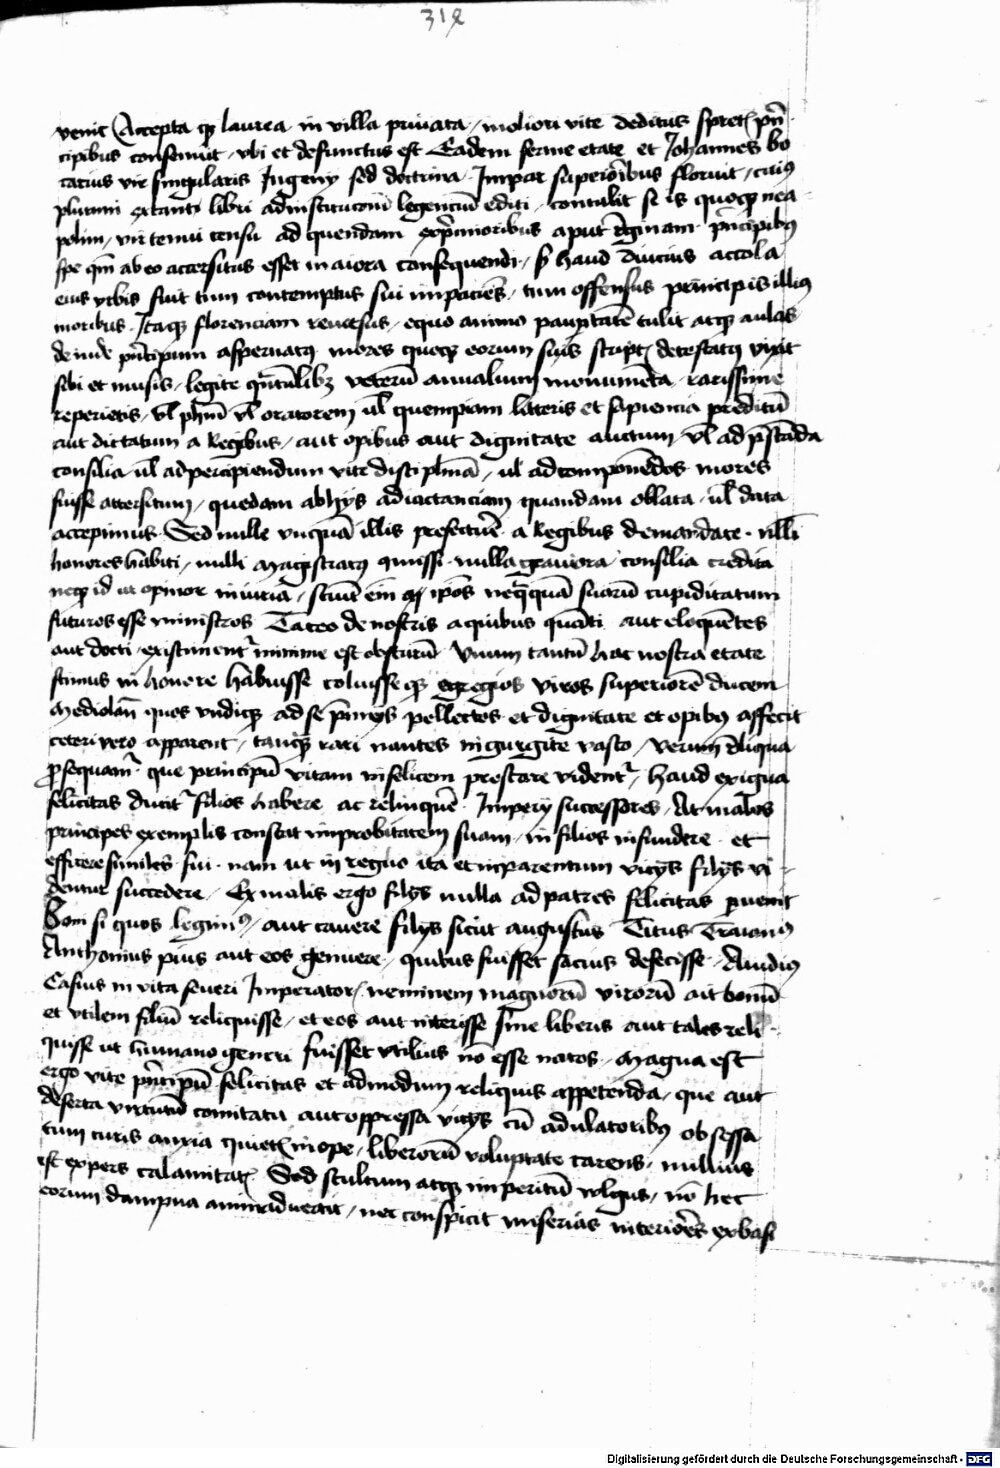 312
venit Accepta qꝫ laurea in villa privata / meliori vite deditus spretꝭ prī
cipibus consenuit / vbi et defunctus est Eadem ferme etate et Johannes bo
catius vir singularis Ingenij sed doctrina Impar superioribus floruit / cuiꝰ
plurimi extanti libri ad institucionē legencium editi / contulit se is quoqꝫ nea
polim / vir tenui censu ad quendam ex primoribus aput Reginam principibꝰ
spe qm̄ ab eo accersitus esset maiora consequendi / sꝫ haud diucius accola
eius vrbis fuit tum contemptus sui impaciēs / tum offensus principis illiꝰ
moribus Itaqꝫ florenciam reversus / equo animo paupertatē tulit atqꝫ aulas
deinde principum aspernatꝰ mores queqꝫ eorum suis scriptꝭ detestatꝰ vixit
sibi et musis / legite veterū annalium monumēta / rarissime
reperietis / vl̄ phm̄ vl̄ oratorem vl̄ quempiam litteris et sapiencia preditū
aut dictatum a Regibus / aut opibus aut dignitate auctum / vl̄ ad prestāda
consilia vl̄ ad percipiendum vite disciplinā / vl̄ ad componēdos mores
fuisse accersitum / quedam ab hijs ad iactanciam quandam oblata / vl̄ data
accepimus Sed nulle vnquā illis prefecturē a Regibus demandate / nulli
honores habiti / nulli magistratꝰ / nulla graviora consilia credita
neqꝫ id ut opinor iniuria / sciūt em̄ ip̄os neqꝫquā suarū cupiditatum
futuros esse ministros Taceo de nostris a quibus quāti aut eloquētes
aut docti / existimentꝰ minime est obscurū Vnum tantū hac nostra etate
scimus in honore habuisse coluisseqꝫ egregios viros superiorē ducem
Mediolanī quos vndiqꝫ ad se premijs pellectos et dignitate et opibꝰ affecit
ceteri vero apparent / tanqꝫ rari nantes in gurgite vasto / verum Reliqua
prosequamur que principū vitam infelicem prestare videntꝰ / haud exigua
felicitas ducitꝰ filios habere ac relinquēe Imperij successores At malos
principes exemplis constat improbitatem suam in filios infundere et
efficere similes sui nam ut in regno ita et in parentum vicijs filijs vi
dentur succedere / Ex malis ergo filijs nulla ad patres felicitas pervenit
Boni si quos legimꝰ / aut cavere filijs sicut augustus Titus Traianꝰ
Anthonius pius aut eos genuere / quibus fuisset sacius defecisse Avidiꝰ
Casius in vita severi Imperatorꝭ neminem magnorū virorū ait bonū
et vtilem filiū reliquisse / et eos aut interisse sine liberis aut tales reli
quisse ut humano generi fuisset vtilius nō esse natos magna est
ergo vite principū felicitas et admodum reliquis appetenda / que aut
deserta virtutū comitatu aut oppressa vicijs cū adulatoribꝰ obsessa
tum curis anxia quietꝭ inope / liberorū voluptate carens nullius
est expers calamitatꝭ Sed stultum atqꝫ imperitū volgus / nō hec
eorum dampna animadvertit / nec conspicit miserias interiorēs ex basi
Digitalisierung gefördert durch die Deutsche Forschungsgemeinschaft - DFG